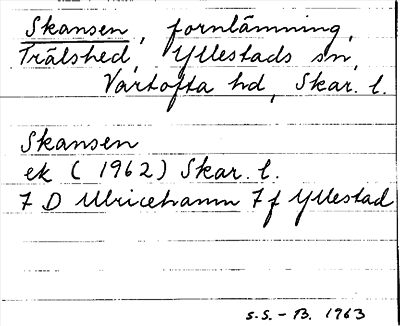 Skansen, fornlämning,
Trälshed, Yllestads sn,
Vartofta hd, Skar. l.
Skansen
ek (1962) Skar. l.
7 D Ulricehamn 7 f Yllestad
S.S.-B. 1963